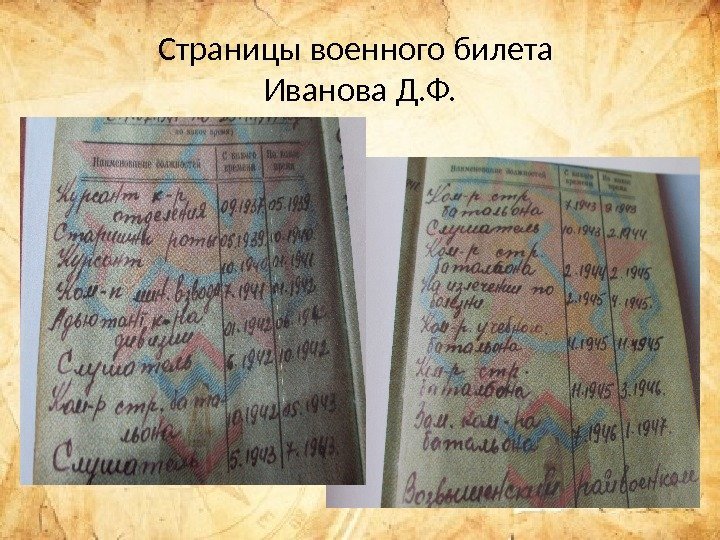 Страницы военного билета
Иванова Д.Ф.
по какое время)
Наименование должностей
С какого времени
По какое время
Курсант к-р
отделения 09.1937 05.1939
Старшины роты 05.1939 10.1940
Курсант 10.1940 01.1941
Ком-р мин. взвода 7.1941 01.1942
Адьютант к-ра
дивизии 01.1942 06.1942
Слушатель 6.1942 10.1942
Ком-р стр. бата-
льона 10.1942 05.1943
Слушатель 5.1943 7.1943
Наименование должностей
С какого времени
По какое время
Ком-р стр.
батальона 7.1943 9.1943
Слушатель 10.1943 2.1944
Ком-р стр.
баталъона 2.1944 2.1945
На излечении по
болезни 2.1945 4.1945
Ком-р. учебного
батальона 4.1945 11.1945
стр.
батальона 11.1945 3.1946
Зам. ком-ра
батальона 7.1946 1.1947
райвоенком